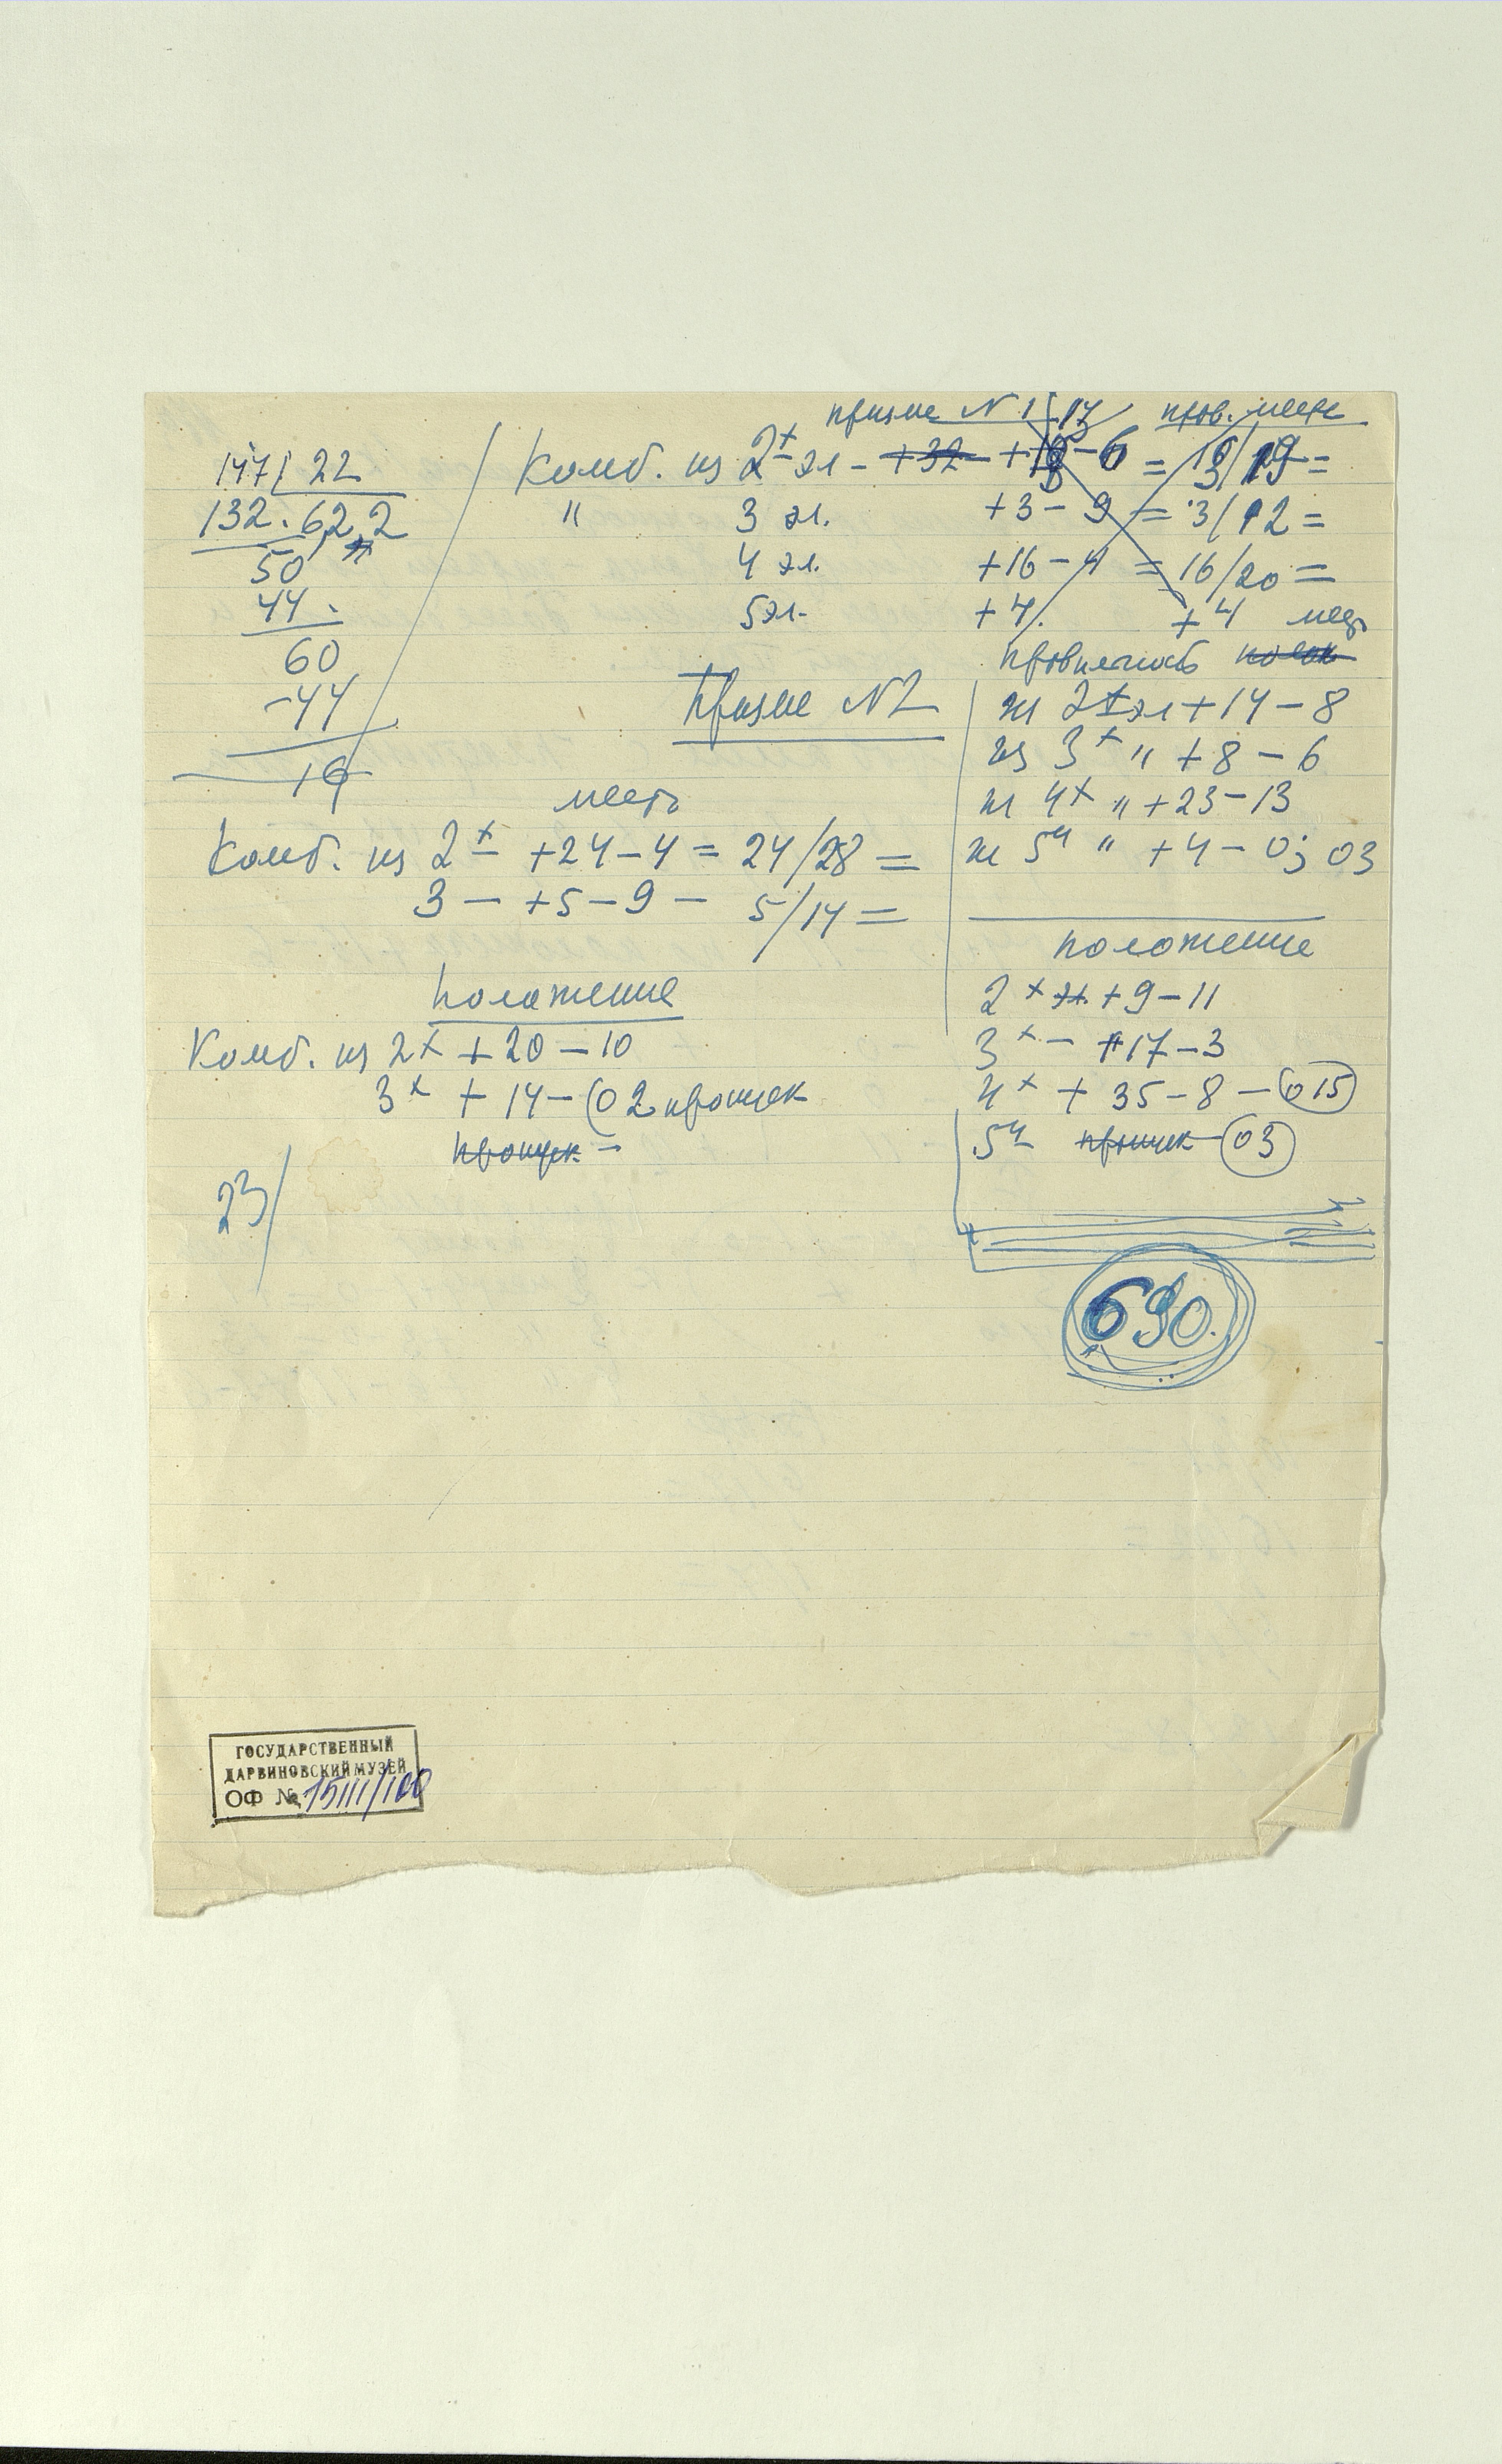 147 | 22
132. 62,2
50
44.
60
-44
16
N 1 17 прав. место
Комб. из 2х эл - +32 +18-6 = 13/19 =
" 3 эл. +3-9 = 3/12 =
4 эл. +16-4 = 16/20 =
5 эл. +4. +4
N2
место
Комб. из 2х +24-4 = 24/28 =
3 - +5-9 - 5/14 =
положение
Комб. из 2х +20-10
3х +14-(02 пропуск
пропуск -
23/
правильность
из 2х эл +14-8
из 3х " +8-6
из 4х " +23-13
из 5и " +4-0; 03
положение
2х эл. +9-11
3х - +17-3
4х +35-8-015
5и пропуск 03
690.
ГОСУДАРСТВЕННЫЙ
ДАРВИНОВСКИЙ МУЗЕЙ
ОФ № 15111/100